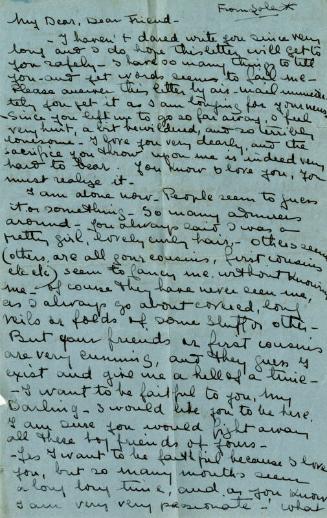 My Dear, Dear Friend -
- I haven't dared write you since very
long and I do hope this letter will get to
you safely - I have so many things to tell
you - and yet words seems to fail me -
Please answer this letter by air-mail immedia
tely you get it as I am longing for your news
Since you left up to go so far away, I feel
very hurt, a bit bewildered, and so terribly
lonesome - I love you very dearly, and the
sacrifice you throw upon me is indeed very
hard to bear. You know I love you, You
must realize it -
I am alone now - People seem to guess
it or something - So many admirers
around - You always said I was a
pretty girl, lovely curly hair - others seem
(others, are all your cousins, first cousins
etc etc) seem to fancy me, without knowing
me - Of course they have never seen me,
as I always go about covered, long
veils or folds of some stuff or other -
But your friends or first cousins
are very cunning, and they guess I
exist and give me a hell of a time -
- I want to be faithful to you, My
Darling - I would like you to be here.
I am sure you would fight away
all these boy friends of yours -
- Yes I want to be faithful because I love
you, but so many months seem
a long long time, and as you know
I am very very passionate - , what